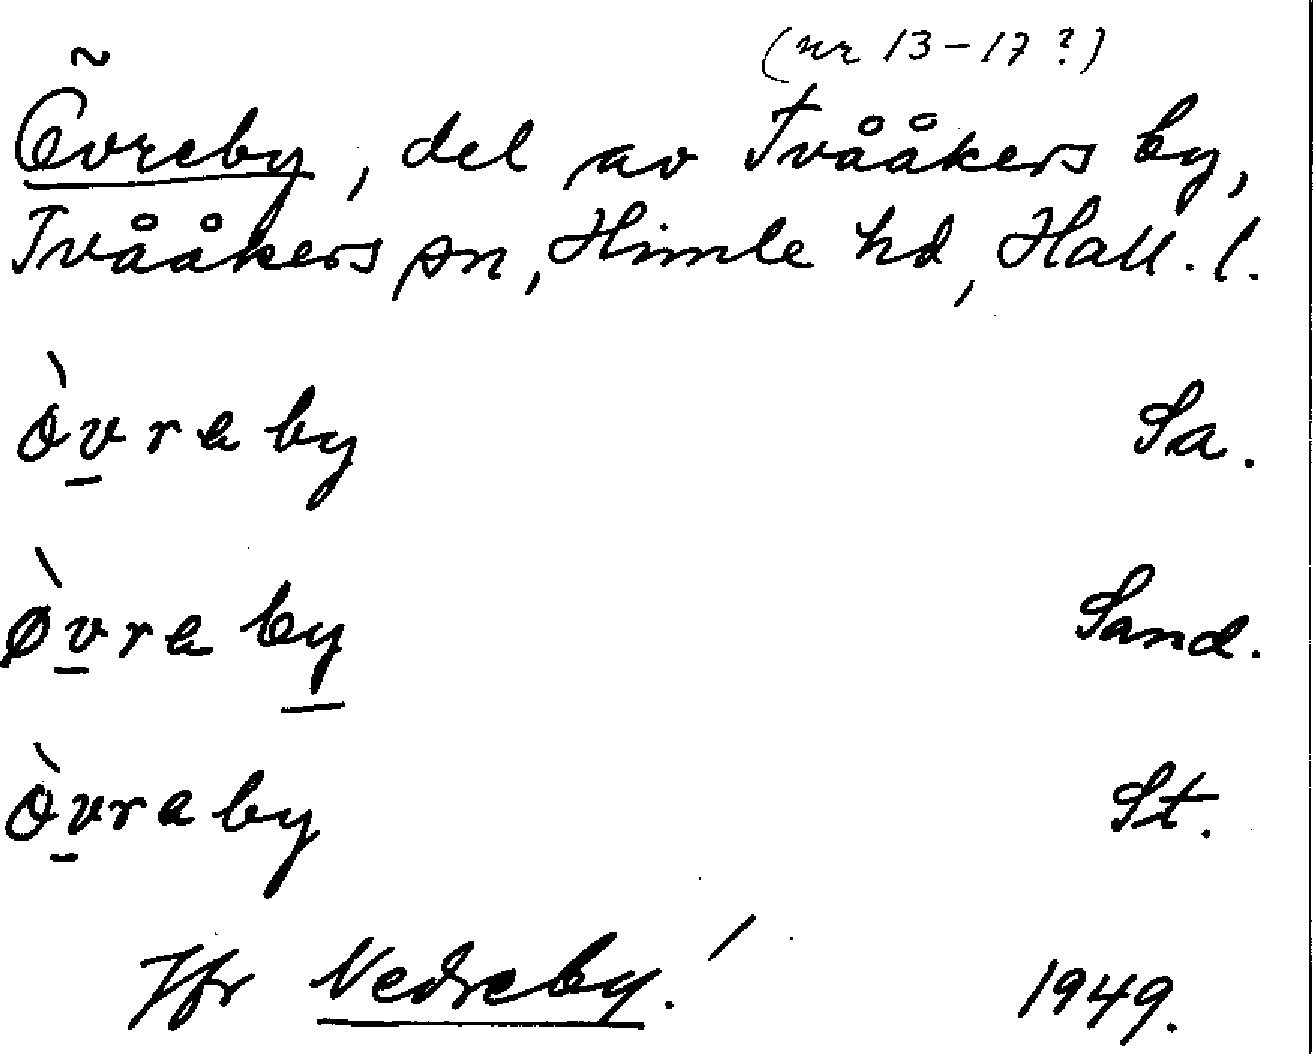 (nr 13-17?)
Övreby, del av Tvååkers by,
Tvååkers sn, Himle hd, Hall. l.
Òv̲raby Sa.
Ø̀v̲raby̲ Sand.
Òv̲raby St.
Jfr Nedreby.
1949.